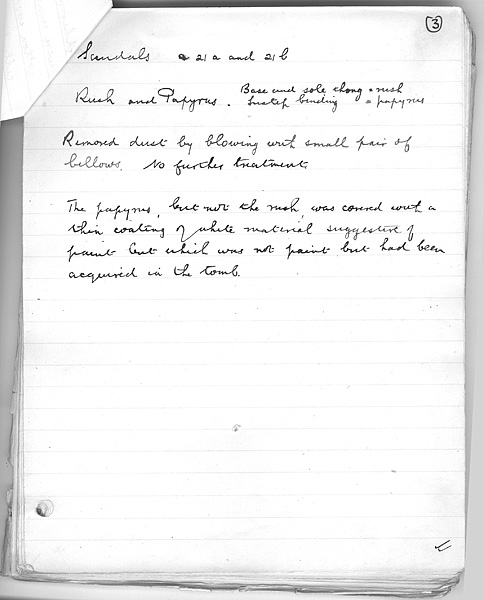 3
Sandals 21a and 21b
Rush and Papyrus. Base and sole thong = rush
Instep binding = papyrus
Removed dust by blowing with small pair of
bellows. No further treatment.
The papyrus, but not the rush, was covered with a
thin coating of white material suggestive of
paint but which was not paint but had been
acquired in the tomb.